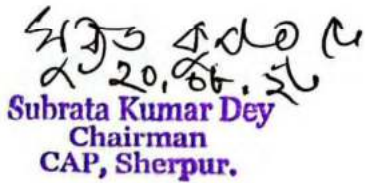 সুব্রত কুমার দে
Subrata Kumar Dey
Chairman
CAP, Sherpur.